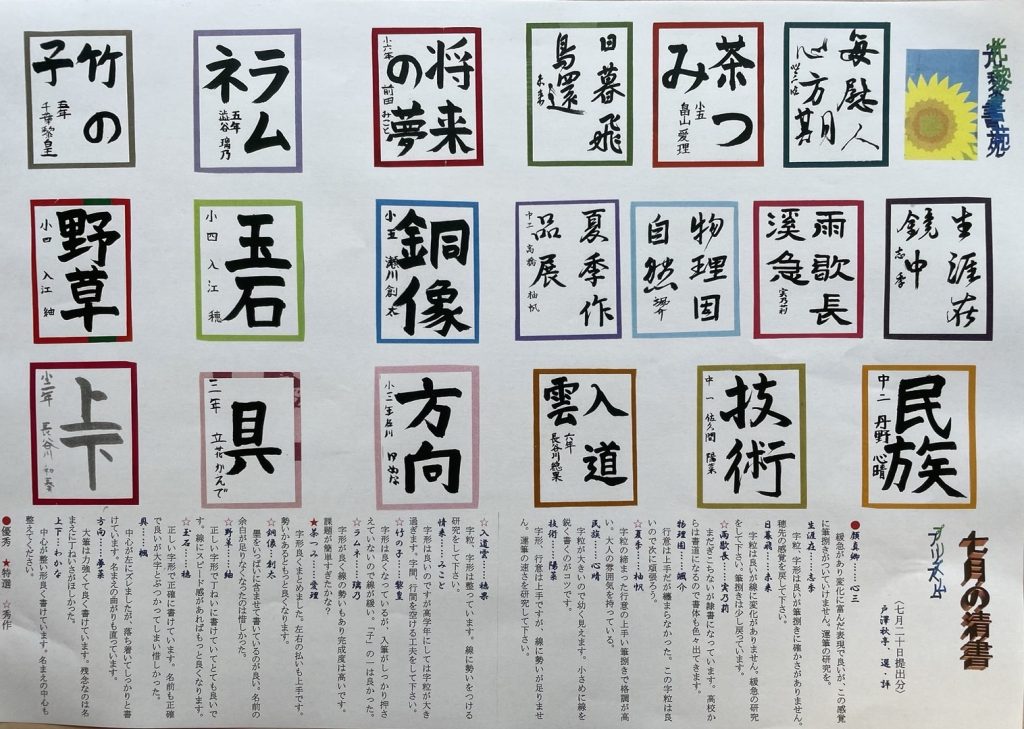 毎慰人
心方其月
茶つ
み
小五
畠山愛理
日暮飛
鳥還
未来
将来
の夢
小六年
前田みこと
ラム
ネ
五年
澁谷璃乃
竹の
子
五年
千葉黎皇
生涯在
鏡中
志季
雨歌長
溪急
実乃莉
物理因
自然
颯介
夏季作
品展
中二 高橋柚帆
銅像
小五 瀬川創太
玉石
小四 入江穂
野草
小四 入江紬
民族
中二 丹野心晴
技術
中一 佐久間陽菜
入道
雲
六年
長谷川穂果
方向
小三年
具
三年 立花かえで
上下
小二年 長谷川和奏
七月の清書
(七月二十日提出分)
戸澤秋亭、選・評
プリズム
●顔真卿……心三
緩急があり変化に富んだ表現で良いが、この感覚
に筆捌きがついていけません。運筆の研究を。
生涯在……志季
字粒、字形は良いが筆捌きに確かさがありません。
穂先の感覚を戻して下さい。
日暮飛……未来
字粒は良いが線に変化がありません。緩急の研究
をして下さい。筆捌きは少し戻っています。
☆雨歌長……実乃莉
まだぎこちないが隷書になっています。高校か
らは書道になるので書体も色々出てきます。
物理因……颯介
行意は上手だが纏まらなかった。この字粒は良
いので次に頑張ろう。
☆夏季……柚帆
字粒の締まった行意の上手い筆捌きで格調が高
い。大人の雰囲気を持っている。
民族……心晴
字粒が大きいので幼く見えます。小さめに線を
鋭く書くのがコツです。
技術……陽菜
字形、行意は上手ですが、線に勢いが足りませ
ん。運筆の速さを研究して下さい。
☆入道雲……穂果
字粒、字形は整っています。線に勢いをつける
研究をして下さい。
将来……みこと
字形は良いのですが高学年にしては字粒が大き
過ぎます。字間、行間を空ける工夫をして下さい。
☆竹の子……黎皇
字形、字粒は良くなっているが、入筆がしっかり押さ
えていないので線が緩い。「子」の一は良かった。
☆ラムネ……璃乃
字形が良く線の勢いもあり完成度は高いです。
課題が簡単すぎたかな？
★茶つみ……愛理
字形良くまとめました。左右の払いも上手です。
勢いがあるともっと良くなります。
☆銅像……創太
墨をいっぱいに含ませて書いているのが良い。名前の
余白が足りなくなったのは惜しかった。
☆野草……紬
正しい字形で丁ねいに書けていてとても良いで
す。線にスピード感があればもっと良くなります。
☆玉石……穂
正しい字形で正確に書けています。名前も正確
で良いが大きい字とぶつかってしまい惜しかった。
具……楓
中心が左にズレましたが、落ち着いてしっかりと書
けています。名まえの曲がりも直っています。
方向……夢菜
大筆は力強くて良く書けています。残念なのは名
まえに丁ねいさがほしかった。
上下……わかな
中心が整い形良く書けています。名まえの中心も
整えてください。
●優秀 ★特選 ☆秀作